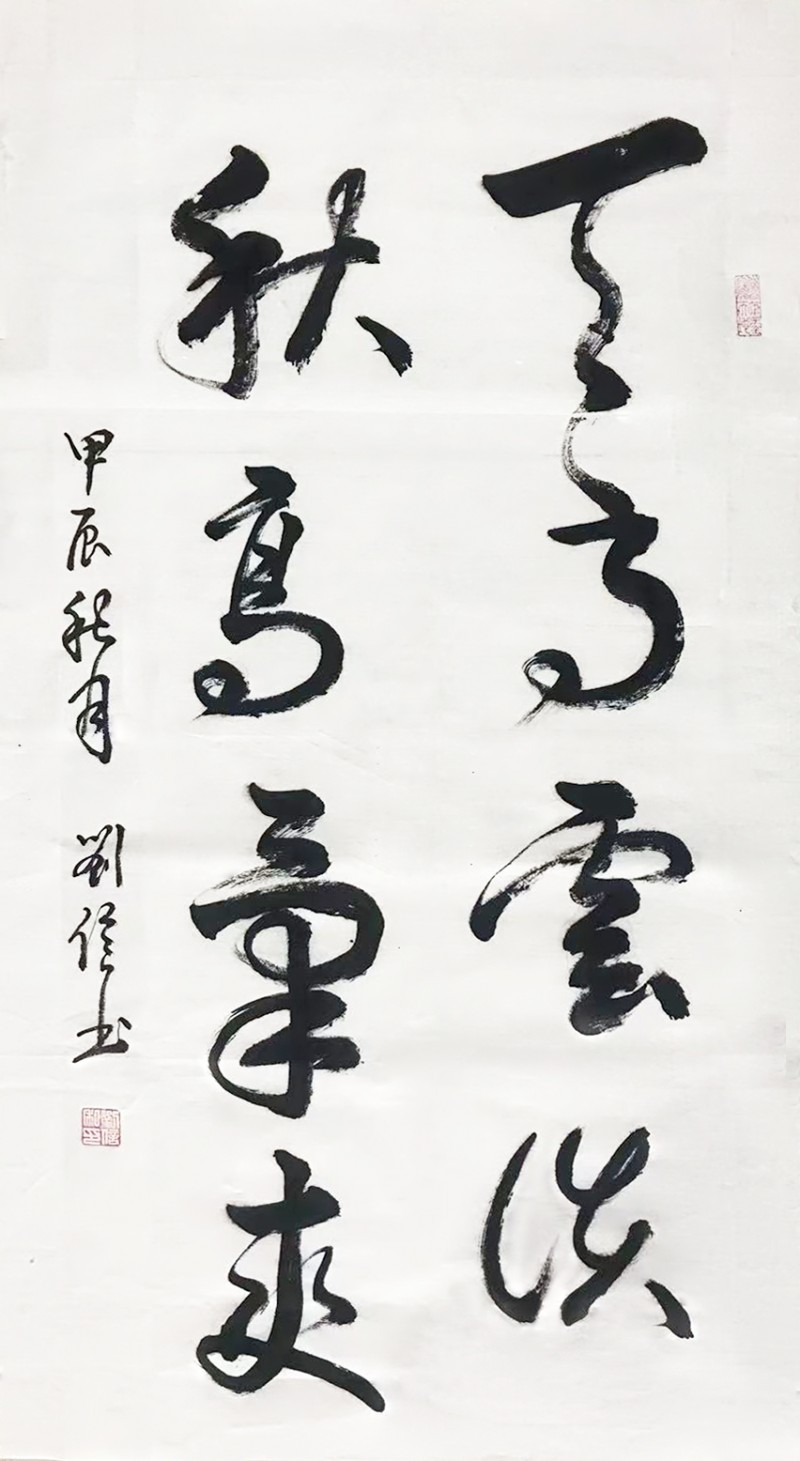 天高雲淡
秋高氣爽
甲辰秋月 劉信书